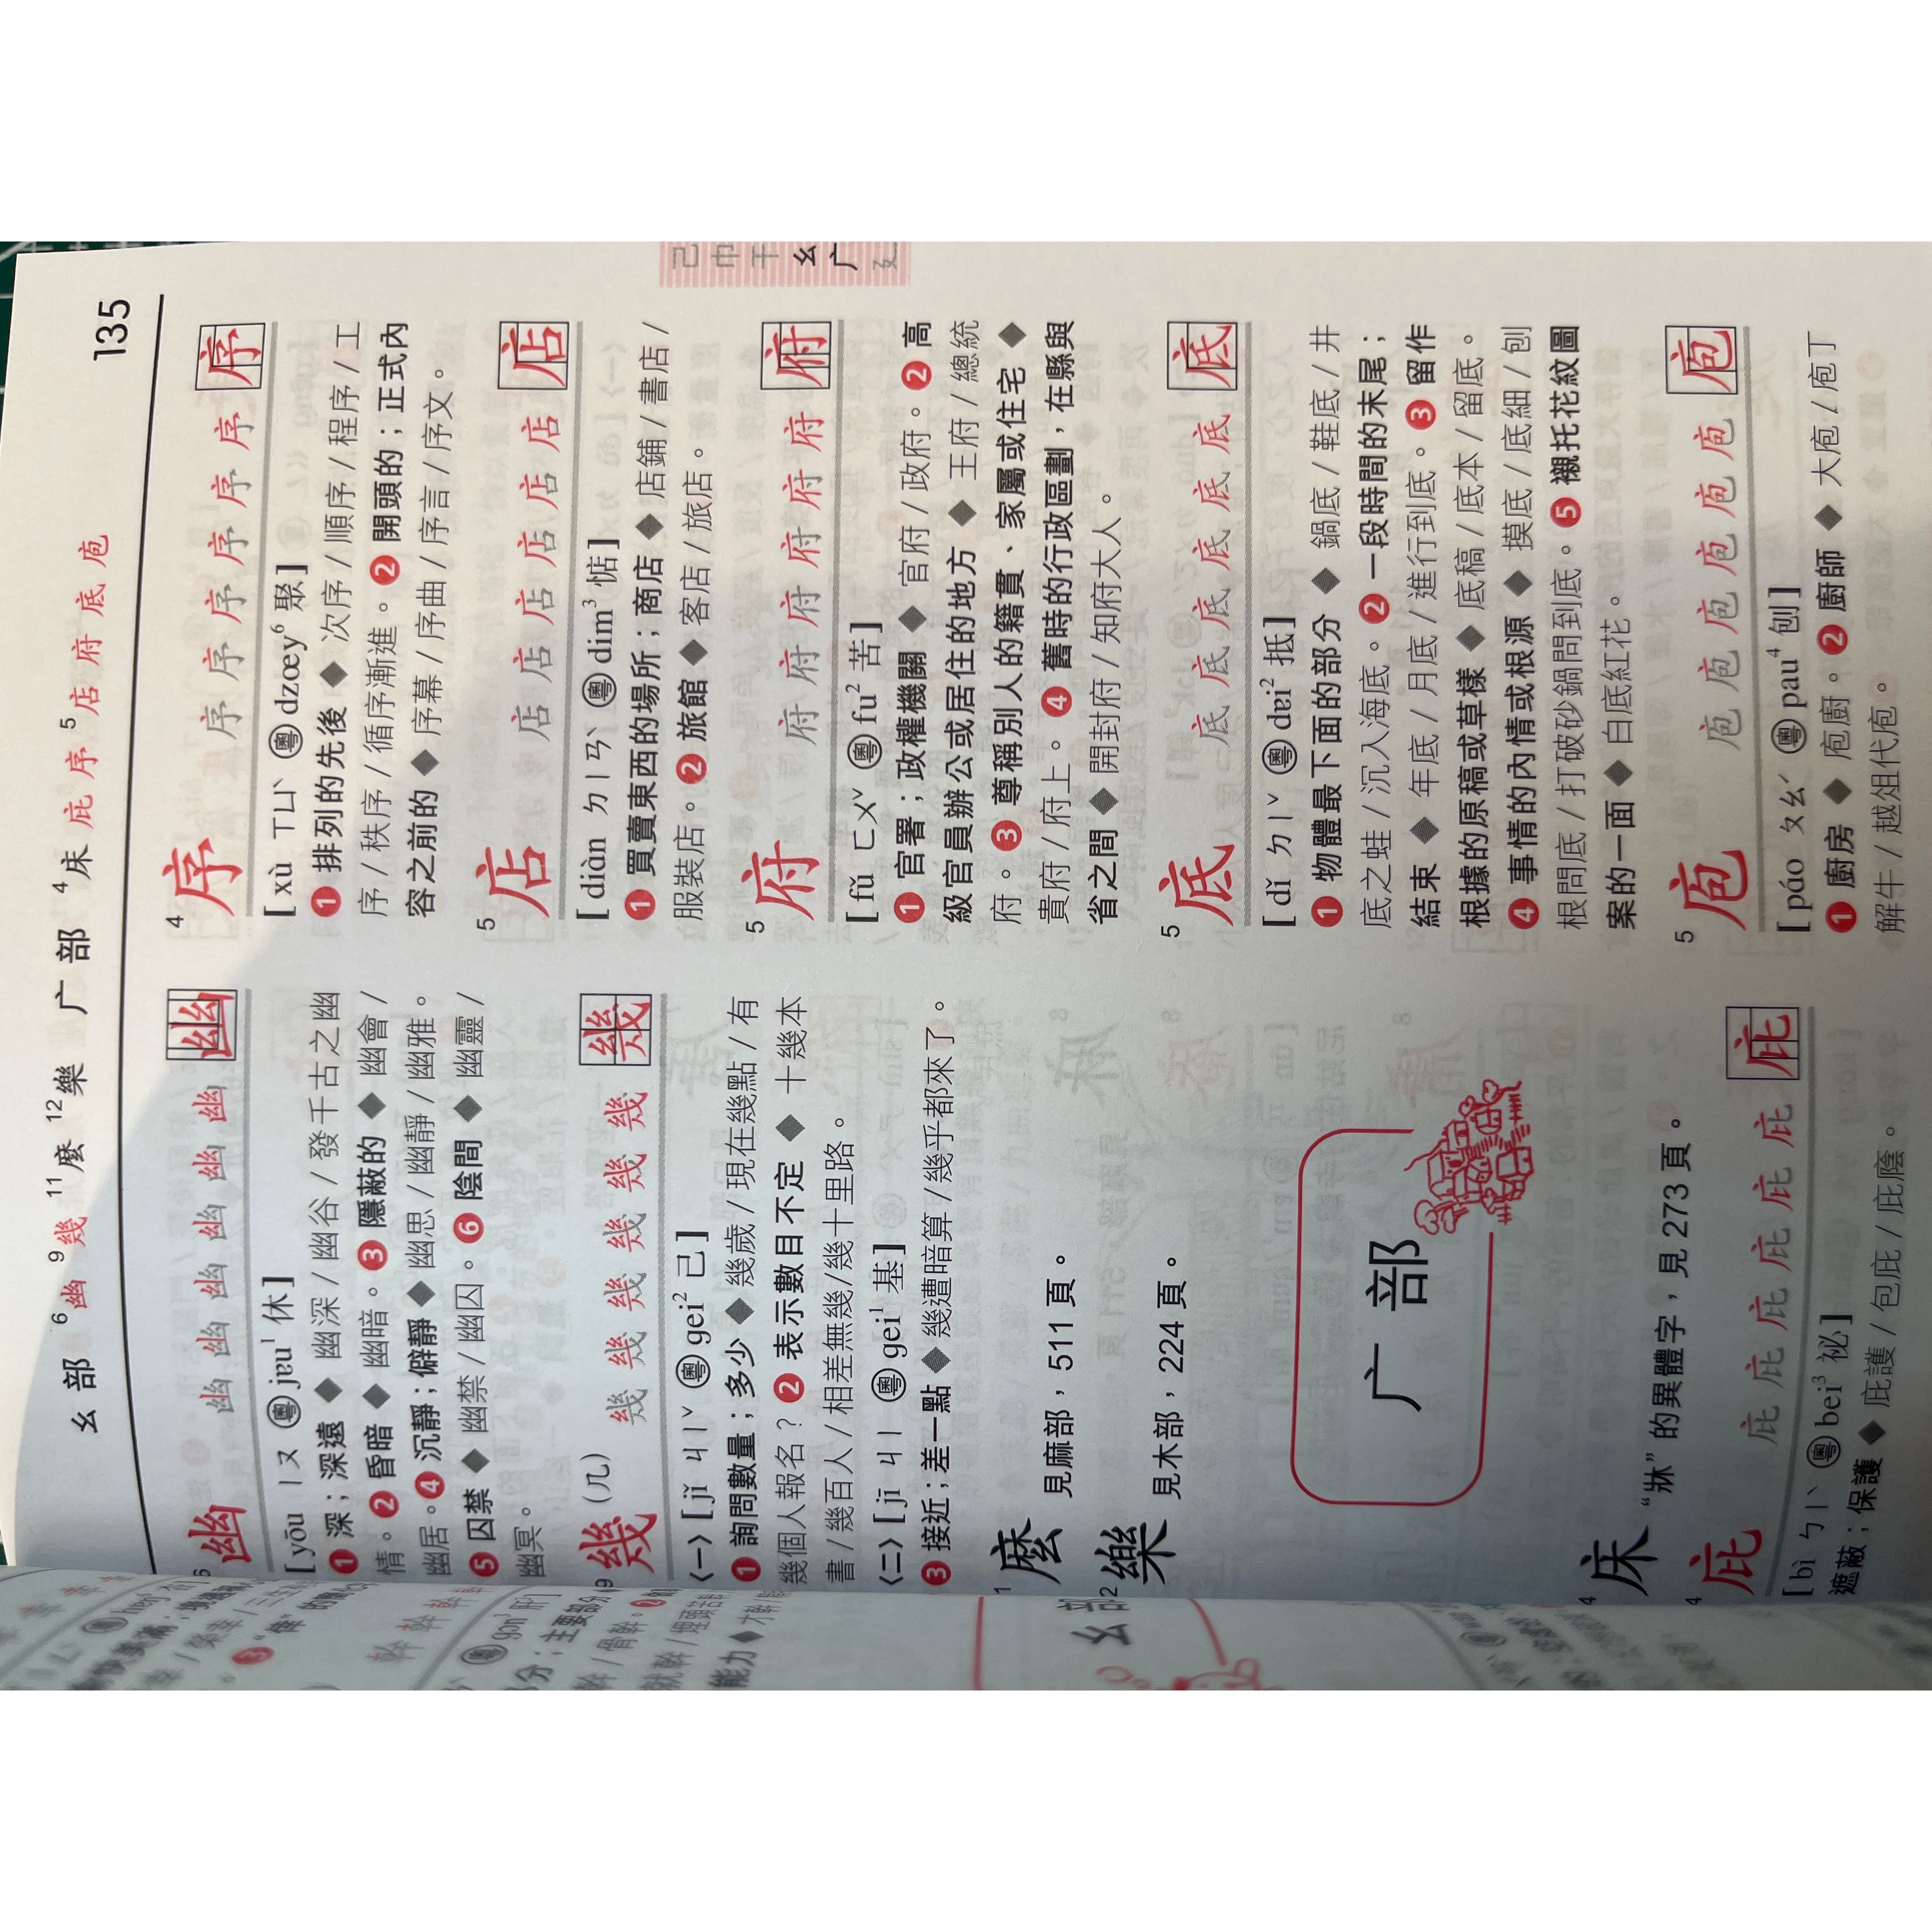 幺部 6 幽 9 幾 11 麼 12 樂 广部 4 床 庇 序 5 店 府 底 庖 135
6 幽 幽 幽 幽 幽 幽 幽 幽
[yōu ㄧㄡ 粵 jɐu¹ 休]
❶ 深；深遠 ◆ 幽深 / 幽谷 / 發千古之幽
情。❷ 昏暗 ◆ 幽暗。❸ 隱蔽的 ◆ 幽會 /
幽居。❹ 沉靜；僻靜 ◆ 幽思 / 幽靜 / 幽雅。
❺ 囚禁 ◆ 幽禁 / 幽囚。❻ 陰間 ◆ 幽靈 /
幽冥。
9 幾 (几) 幾 幾 幾 幾 幾 幾 幾
〈一〉[jǐ ㄐㄧˇ 粵 gei² 己]
❶ 詢問數量；多少 ◆ 幾歲 / 現在幾點 / 有
幾個人報名？❷ 表示數目不定 ◆ 十幾本
書 / 幾百人 / 相差無幾 / 幾十里路。
〈二〉[jī ㄐㄧ 粵 gei¹ 基]
❸ 接近；差一點 ◆ 幾遭暗算 / 幾乎都來了。
1 麼 見麻部，511 頁。
2 樂 見木部，224 頁。
广部
4 床 “牀” 的異體字，見 273 頁。
4 庇 庇 庇 庇 庇 庇 庇 庇
[bì ㄅㄧˋ 粵 bei³ 祕]
遮蔽；保護 ◆ 庇護 / 包庇 / 庇陰。
4 序 序 序 序 序 序 序 序
[xù ㄒㄩˋ 粵 dzœy⁶ 聚]
❶ 排列的先後 ◆ 次序 / 順序 / 程序 / 工
序 / 秩序 / 循序漸進。❷ 開頭的；正式內
容之前的 ◆ 序幕 / 序曲 / 序言 / 序文。
5 店 店 店 店 店 店 店 店
[diàn ㄉㄧㄢˋ 粵 dim³ 惦]
❶ 買賣東西的場所；商店 ◆ 店鋪 / 書店 /
服裝店。❷ 旅館 ◆ 客店 / 旅店。
5 府 府 府 府 府 府 府 府
[fǔ ㄈㄨˇ 粵 fu² 苦]
❶ 官署；政權機關 ◆ 官府 / 政府。❷ 高
級官員辦公或居住的地方 ◆ 王府 / 總統
府。❸ 尊稱別人的籍貫、家屬或住宅 ◆
貴府 / 府上。❹ 舊時的行政區劃，在縣與
省之間 ◆ 開封府 / 知府大人。
5 底 底 底 底 底 底 底 底
[dǐ ㄉㄧˇ 粵 dɐi² 抵]
❶ 物體最下面的部分 ◆ 鍋底 / 鞋底 / 井
底之蛙 / 沉入海底。❷ 一段時間的末尾；
結束 ◆ 年底 / 月底 / 進行到底。❸ 留作
根據的原稿或草樣 ◆ 底稿 / 底本 / 留底。
❹ 事情的內情或根源 ◆ 摸底 / 底細 / 刨
根問底 / 打破砂鍋問到底。❺ 襯托花紋圖
案的一面 ◆ 白底紅花。
5 庖 庖 庖 庖 庖 庖 庖 庖
[páo ㄆㄠˊ 粵 pau⁴ 刨]
❶ 廚房 ◆ 庖廚。❷ 廚師 ◆ 大庖 / 庖丁
解牛 / 越俎代庖。
己
巾
干
幺
广
廴
幹 幹 幹
能力 ◆
幺部